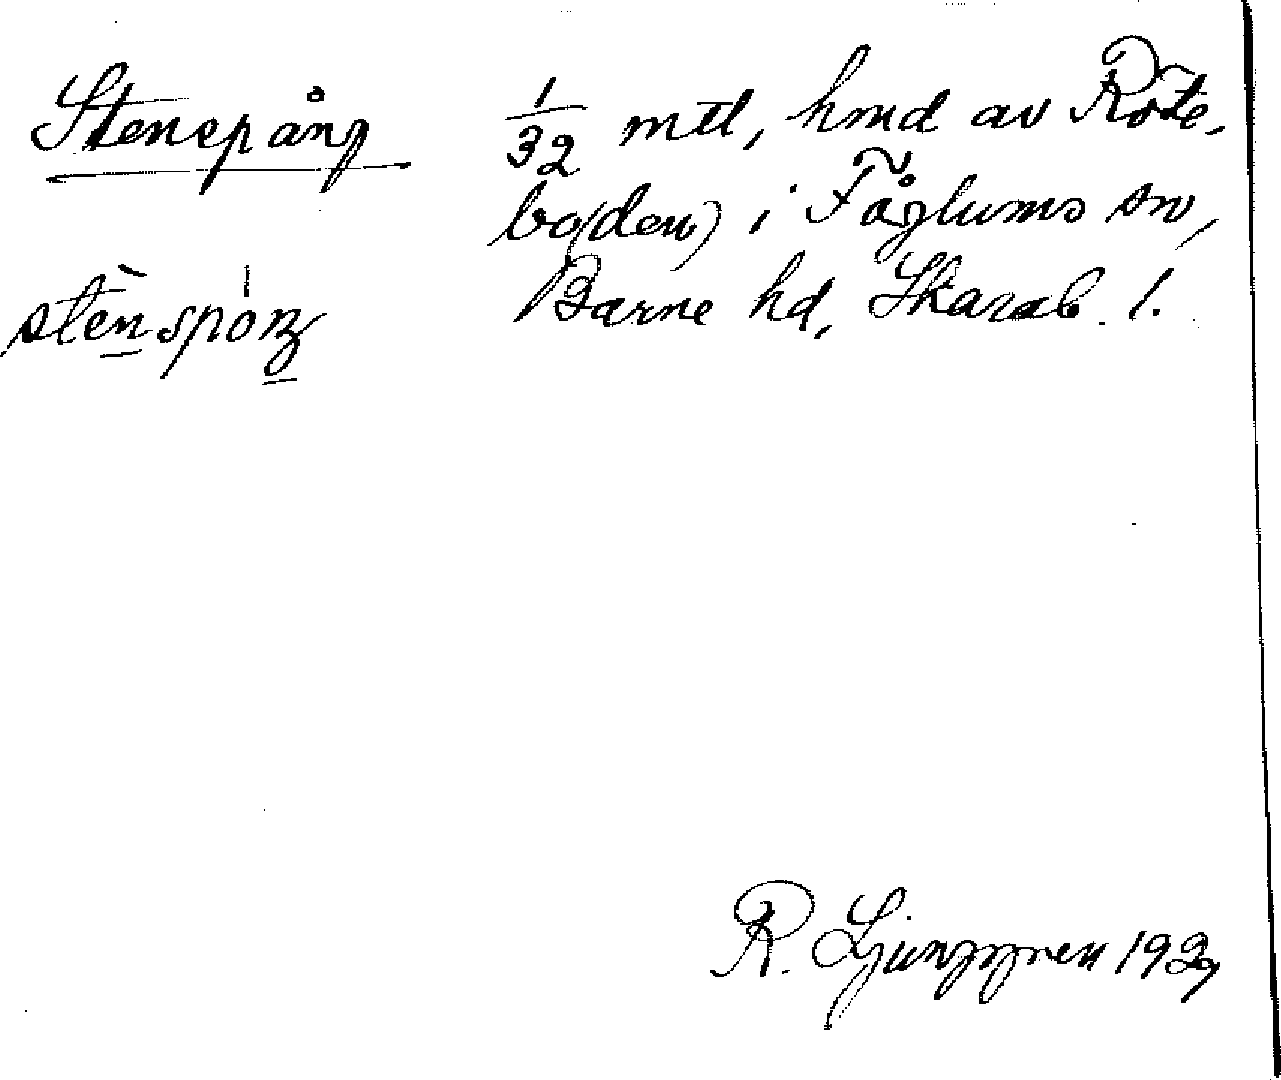 Stenspång
stènspóŋ
1/32 mtl, hmd av Rote-
bo(den) i Fåglums sn,
Barne hd, Skarab. l.
R. Ljunggren